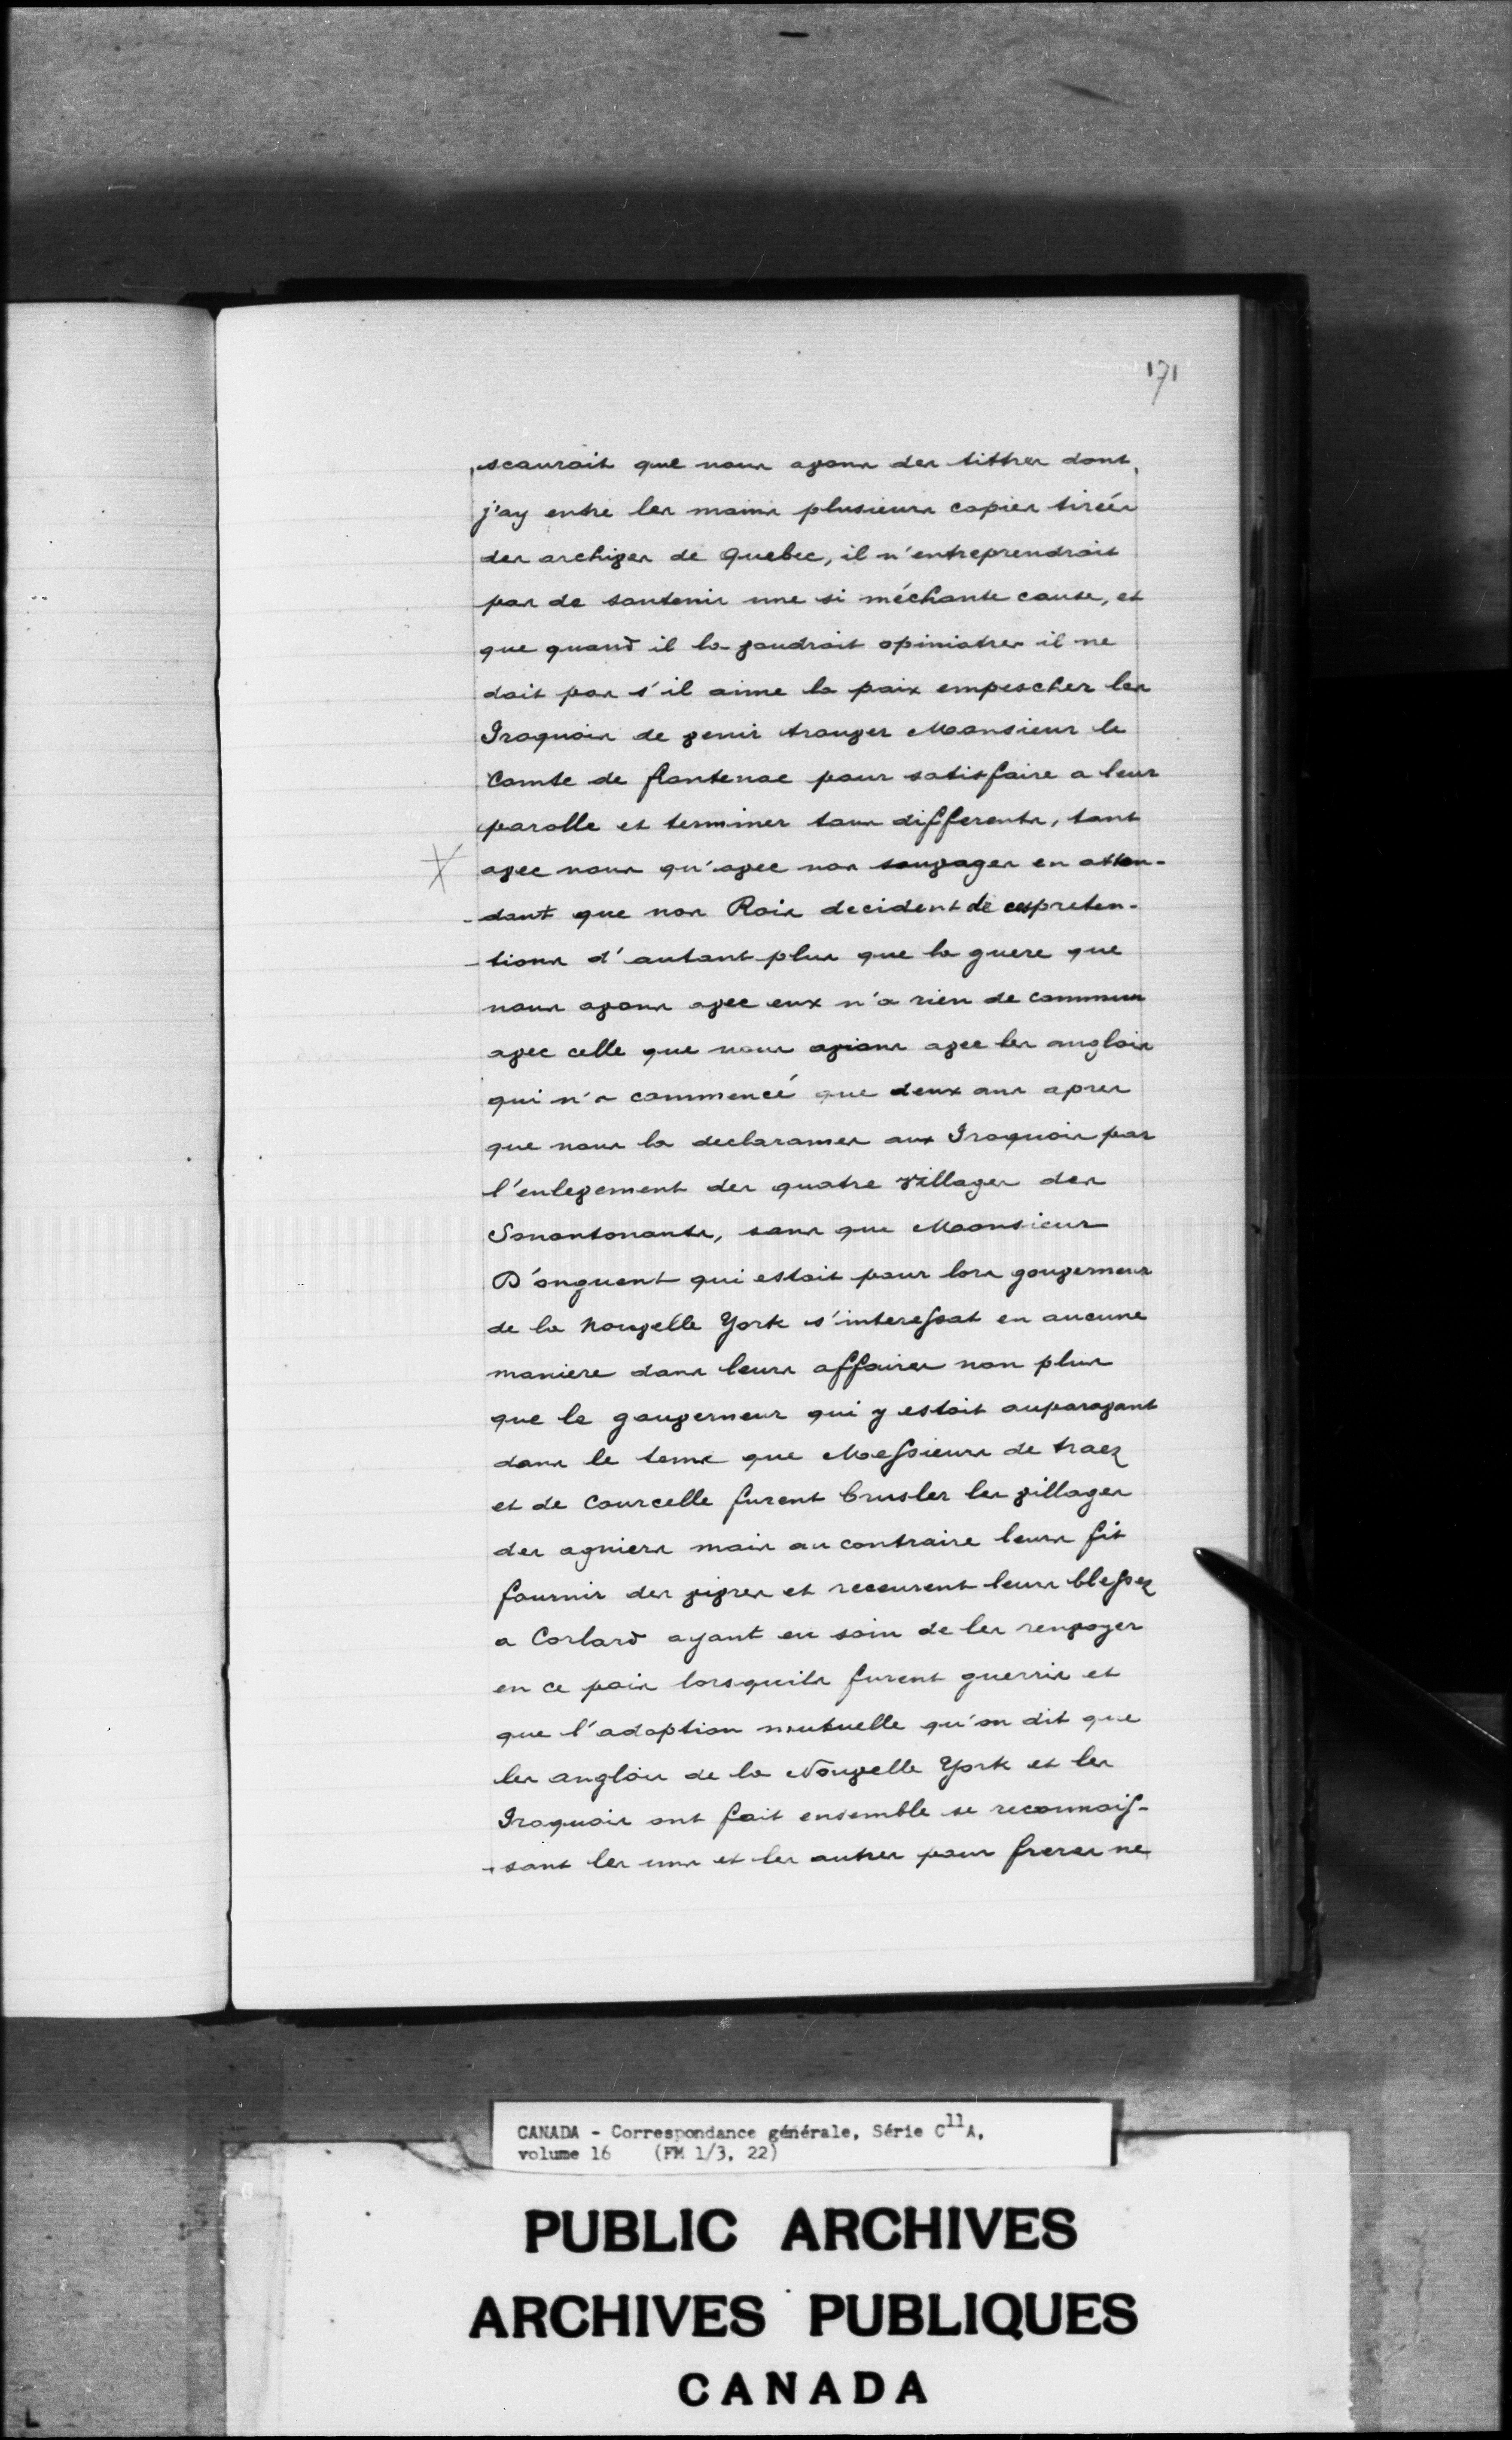 171
scauroit que nous avons des tittres dont
j'ay entre les mains plusieurs copies tirées
des archives de Quebec, il n'entreprendroit
pas de soutenir une si méchante cause, et
que quand il la voudroit opiniatrer il ne
doit pas s'il aime la paix empescher les
Iroquois de venir trouver Monsieur le
Comte de frontenac pour satisfaire a leur
parolle et terminer tous differents, tant
avec nous qu'avec nos sauvages en atten-
-dant que nos Rois decident de ces preten-
-tions d'autant plus que la guere que
nous avons avec eux n'a rien de commun
avec celle que nous avions avec les anglois
qui n'a commencé que deux ans apres
que nous la declarames aux Iroquois par
l'enlevement des quatre villages des
Sonontonants, sans que Monsieur
D'onguent qui estoit pour lors gouverneur
de la Nouvelle York s'interessat en aucune
maniere dans leurs affaires non plus
que le gouverneur qui y estoit auparavant
dans le tems que Messieurs de tracz
et de Courcelle furent brusler les villages
des agniers mais au contraire leurs fit
fournir des vivres et receurent leurs blessez
a Corlard ayant eu soin de les renvoyer
en ce pais lorsquils furent guerris et
que l'adoption mutuelle qu'on dit que
les anglois de la Nouvelle York et les
Iroquois ont fait ensemble se reconnois-
-sant les uns et les autres pour freres ne
CANADA - Correspondance générale, Série C11A,
volume 16 (FM 1/3, 22)
PUBLIC ARCHIVES
ARCHIVES PUBLIQUES
CANADA